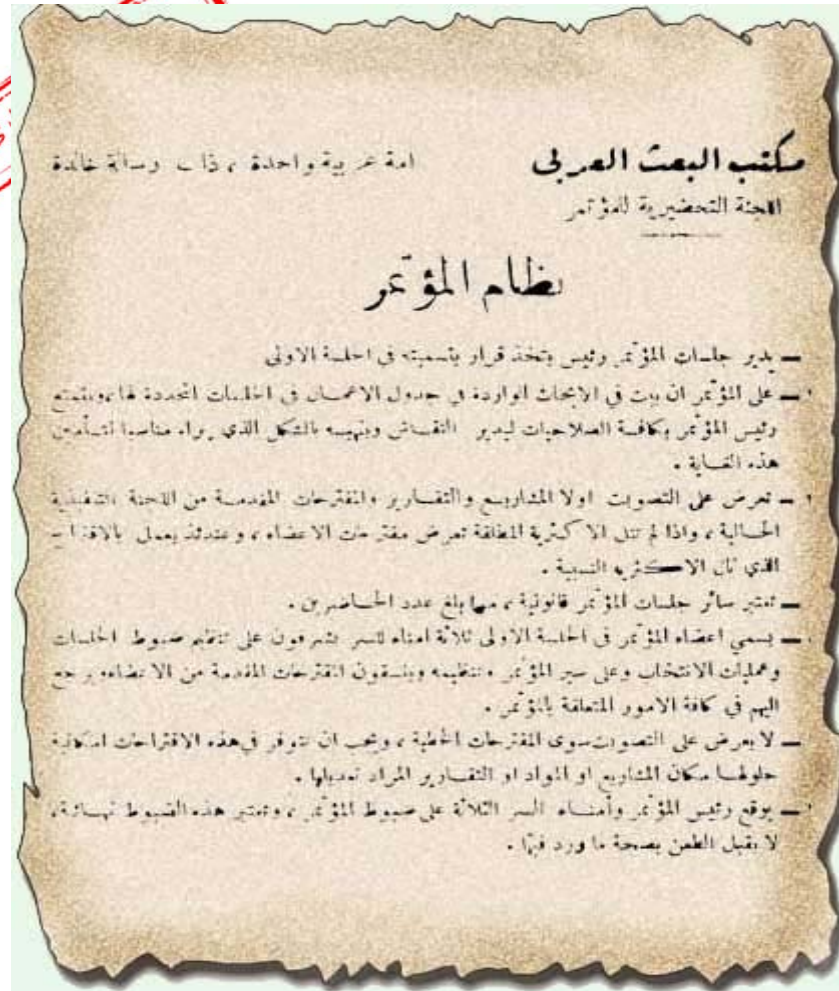 مكتب البعث العربي
امة عربية واحدة ، ذات رسالة خالدة
اللجنة التحضيرية للمؤتمر
نظام المؤتمر
— يدير جلسات المؤتمر رئيس يتخذ قرار بتسميته في الجلسة الاولى
— على المؤتمر ان يبت في الابحاث الواردة في جدول الاعمال في الجلسات المحددة لها ، ويتمتع
رئيس المؤتمر بكافة الصلاحيات ليدير النقاش وينهيه بالشكل الذي يراه مناسبا لتأمين
هذه الغاية .
— تعرض على التصويت اولا المشاريع والتقارير والمقترحات المقدمة من اللجنة التنفيذية
الحالية ، واذا لم تنل الاكثرية المطلقة تعرض مقترحات الاعضاء ، وعندئذ يعمل بالاقتراح
الذي نال الاكثرية النسبية .
— تعتبر سائر جلسات المؤتمر قانونية ، مهما بلغ عدد الحاضرين .
— يسمي اعضاء المؤتمر في الجلسة الاولى ثلاثة امناء للسر يشرفون على تنظيم ضبوط الجلسات
وعمليات الانتخاب وعلى سير المؤتمر وتنظيمه وينسقون المقترحات المقدمة من الاعضاء ويرجع
اليهم في كافة الامور المتعلقة بالمؤتمر .
— لا يعرض على التصويت سوى المقترحات الخطية ، ويجب ان تتوفر في هذه الاقتراحات امكانية
حلولها مكان المشاريع او المواد او التقارير المراد تعديلها .
— يوقع رئيس المؤتمر وأمناء السر الثلاثة على ضبوط المؤتمر ، وتعتبر هذه الضبوط نهائية،
لا يقبل الطعن بصحة ما ورد فيها .